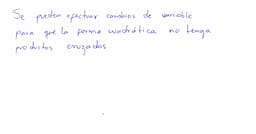 Se pueden efectuar cambios de variable
para que la forma cuadrática no tenga
productos cruzados